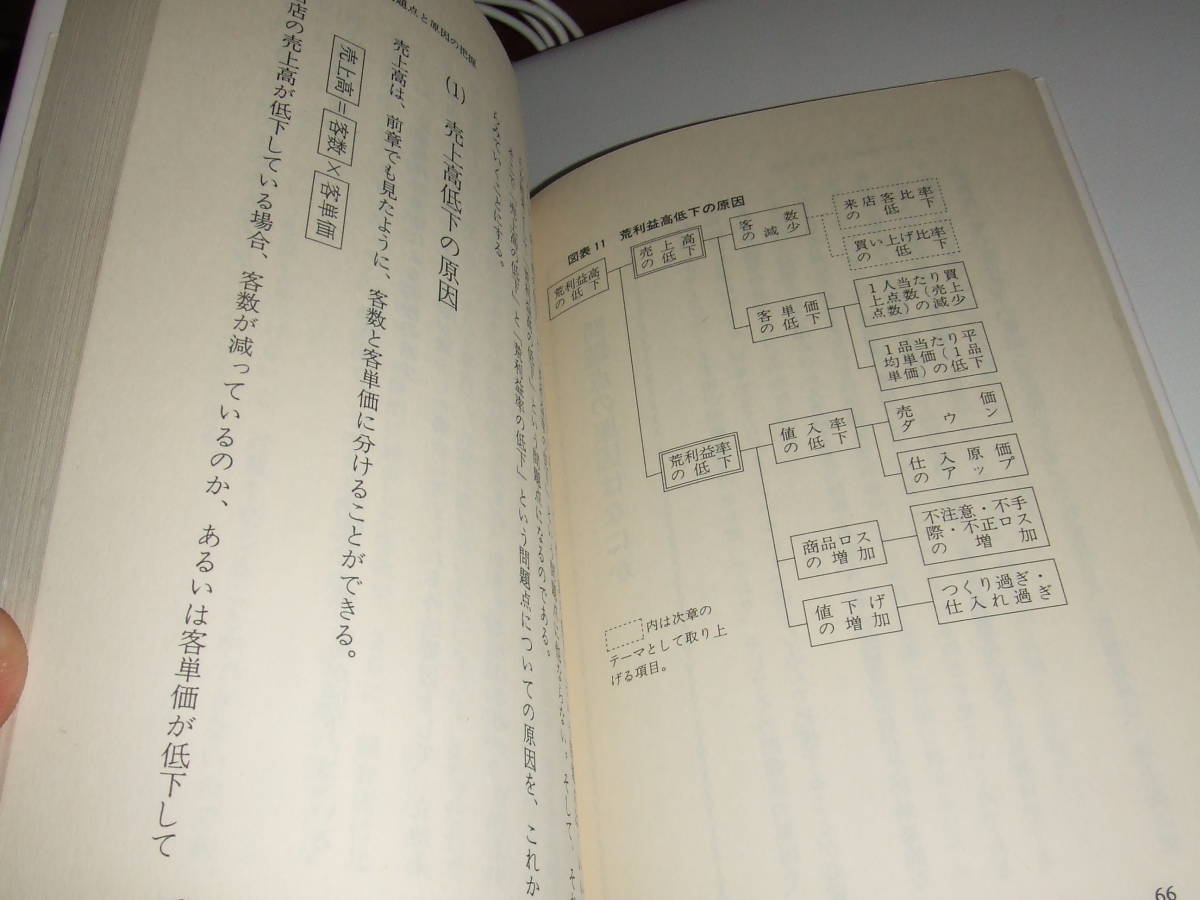 図表11　荒利益高低下の原因
荒利益高
の低下
売上高
の低下
客数
の減少
来店客比率
の低下
買い上げ比率
の低下
客単価
の低下
1人当たり買
上点数(売上
点数)の減少
1品当たり平
均単価(1品
単価)の低下
荒利益率
の低下
値入率
の低下
売価
ダウン
仕入原価
のアップ
商品ロス
の増加
不注意・不手
際・不正ロス
の増加
値下げ
の増加
つくり過ぎ・
仕入れ過ぎ
内は次章の
テーマとして取り上
げる項目。
66
題点と原因の把握
という問題点になるのである。
「荒利益率の低下」という問題点についての原因を、これか
らみていくことにする。
(1)　売上高低下の原因
売上高は、前章でも見たように、客数と客単価に分けることができる。
売上高＝客数×客単価
店の売上高が低下している場合、客数が減っているのか、あるいは客単価が低下して